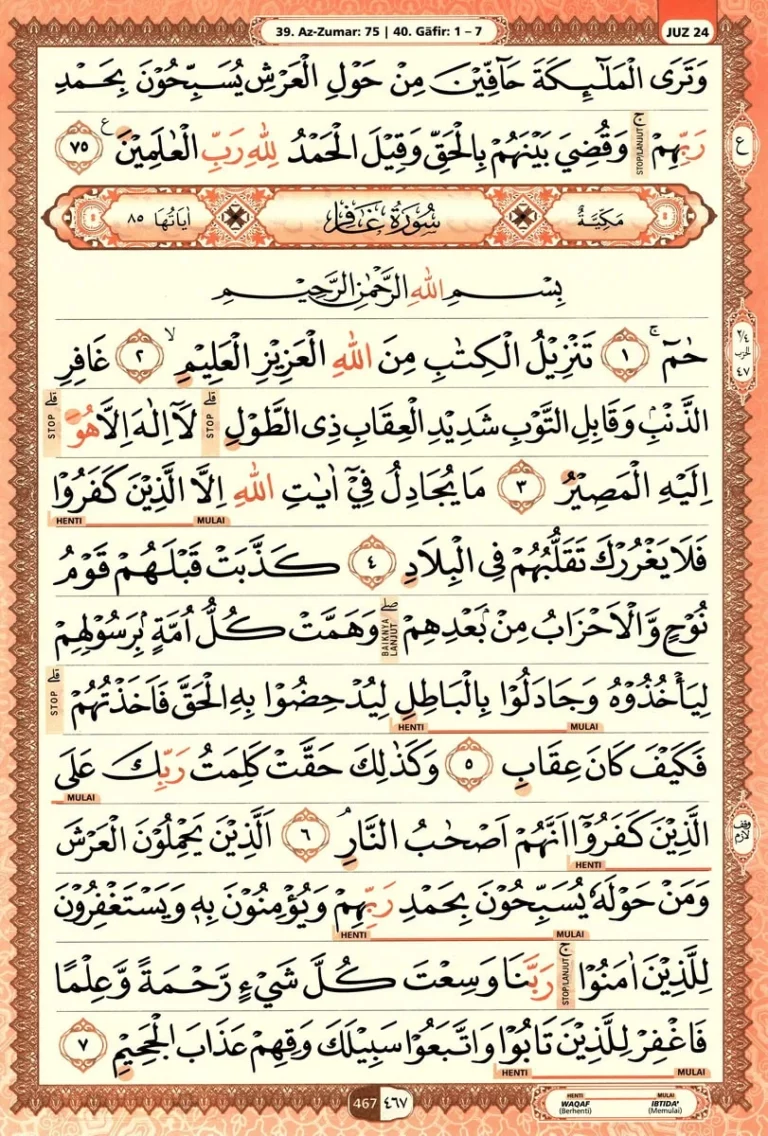 39. Az-Zumar: 75 | 40. Gāfir: 1 – 7
JUZ 24
وَتَرَى الْمَلٰۤىِٕكَةَ حَاۤفِّيْنَ مِنْ حَوْلِ الْعَرْشِ يُسَبِّحُوْنَ بِحَمْدِ
رَبِّهِمْۚ STOP/LANJUT وَقُضِيَ بَيْنَهُمْ بِالْحَقِّ وَقِيْلَ الْحَمْدُ لِلّٰهِ رَبِّ الْعٰلَمِيْنَ ࣖ ٧٥
ع
مَكِّيَّةٌ سُوْرَةُ غَافِر اٰيَاتُهَا ٨٥
بِسْمِ اللّٰهِ الرَّحْمٰنِ الرَّحِيْمِ
حٰمۤ ۚ ١ تَنْزِيْلُ الْكِتٰبِ مِنَ اللّٰهِ الْعَزِيْزِ الْعَلِيْمِۙ ٢ غَافِرِ
٢/٤ الحزب ٤٧
الذَّنْۢبِ وَقَابِلِ التَّوْبِ شَدِيْدِ الْعِقَابِ ذِى الطَّوْلِۗ STOP لَآ اِلٰهَ اِلَّا هُوَۗ STOP
اِلَيْهِ الْمَصِيْرُ ٣ مَا يُجَادِلُ فِيْٓ اٰيٰتِ اللّٰهِ اِلَّا الَّذِيْنَ كَفَرُوْا
MULAI HENTI
فَلَا يَغْرُرْكَ تَقَلُّبُهُمْ فِى الْبِلَادِ ٤ كَذَّبَتْ قَبْلَهُمْ قَوْمُ
نُوْحٍ وَّالْاَحْزَابُ مِنْۢ بَعْدِهِمْۖ BAIKNYA LANJUT وَهَمَّتْ كُلُّ اُمَّةٍۢ بِرَسُوْلِهِمْ
لِيَأْخُذُوْهُ وَجَادَلُوْا بِالْبَاطِلِ لِيُدْحِضُوْا بِهِ الْحَقَّ فَاَخَذْتُهُمْۗ STOP
MULAI HENTI
فَكَيْفَ كَانَ عِقَابِ ٥ وَكَذٰلِكَ حَقَّتْ كَلِمَتُ رَبِّكَ عَلَى
MULAI
الَّذِيْنَ كَفَرُوْٓا اَنَّهُمْ اَصْحٰبُ النَّارِۘ ٦ اَلَّذِيْنَ يَحْمِلُوْنَ الْعَرْشَ
HENTI
وقف لازم
وَمَنْ حَوْلَهٗ يُسَبِّحُوْنَ بِحَمْدِ رَبِّهِمْ وَيُؤْمِنُوْنَ بِهٖ وَيَسْتَغْفِرُوْنَ
MULAI HENTI
لِلَّذِيْنَ اٰمَنُوْاۚ STOP/LANJUT رَبَّنَا وَسِعْتَ كُلَّ شَيْءٍ رَّحْمَةً وَّعِلْمًا
فَاغْفِرْ لِلَّذِيْنَ تَابُوْا وَاتَّبَعُوْا سَبِيْلَكَ وَقِهِمْ عَذَابَ الْجَحِيْمِ ٧
MULAI HENTI
467 ٤٦٧
HENTI MULAI
WAQAF IBTIDA'
(Berhenti) (Memulai)